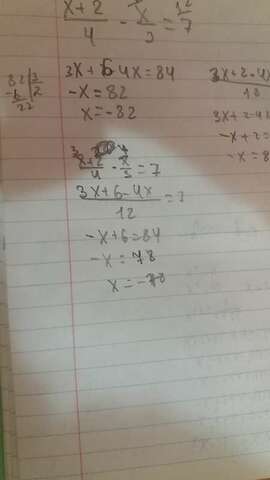 x+2/4 - x/3 = 12/7
3x+6-4x=84
-x=82
x=-82
82|3
-6 2
22
3x+2-4x
12
3x+2-4x
-x+2=
-x=8
3 4
x+2/4 - x/3 = 7
3x+6-4x/12 = 7
-x+6=84
-x=78
x=-78